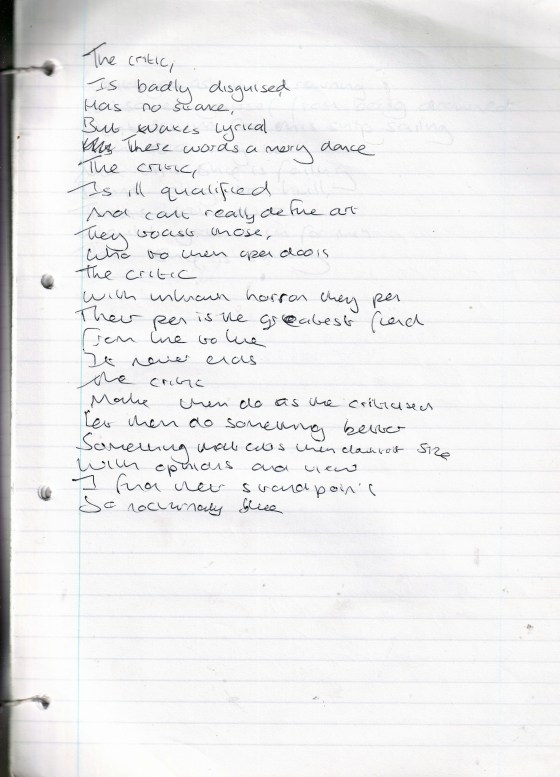 The critic,
Is badly disguised
Has no
But makes lyrical
There words a merry dance
The critic,
Is ill qualified
And cant really define art
They those,
Who to them open doors
The critic
With unknown horror they pen
Their pen is the greatest fiend
From line to line
It never ends
The critic
Make them do as the criticised
Let them do something better
Something that cuts them down to size
With opinions and view
I find their standpoint's
So